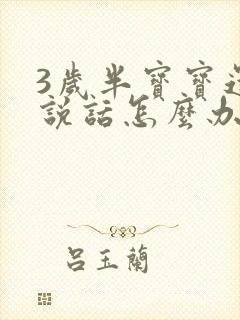 3歲半寶寶還
說話怎麼办
呂玉蘭